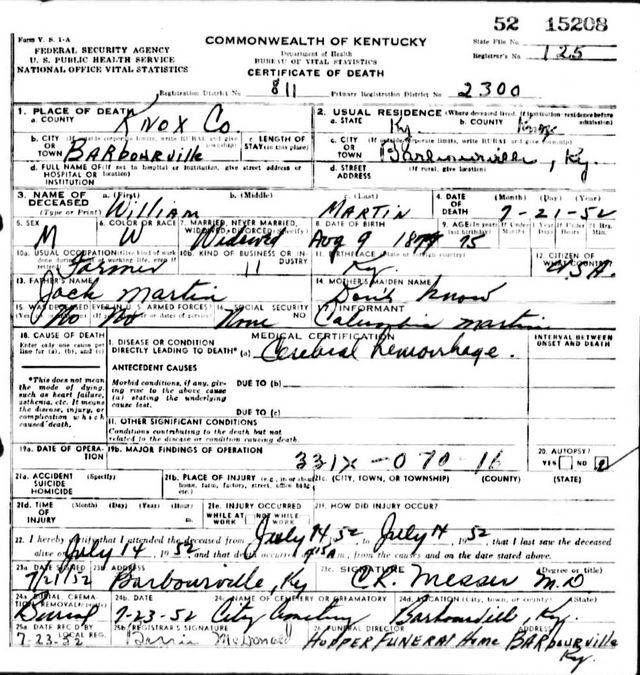 52 15208
Form V. S. 1-A
FEDERAL SECURITY AGENCY
U. S. PUBLIC HEALTH SERVICE
NATIONAL OFFICE VITAL STATISTICS
COMMONWEALTH OF KENTUCKY
Department of Health
BUREAU OF VITAL STATISTICS
CERTIFICATE OF DEATH
State File No.
Registrar's No. 125
Registration District No. 811 Primary Registration District No. 2300
1. PLACE OF DEATH
a. COUNTY Knox Co
2. USUAL RESIDENCE (Where deceased lived. If institution: residence before admission)
a. STATE Ky. b. COUNTY Knox
b. CITY OR TOWN Barbourville
c. LENGTH OF STAY (in this place)
c. CITY OR TOWN Barbourville, Ky.
d. FULL NAME OF HOSPITAL OR INSTITUTION (If not in hospital or institution, give street address or location)
d. STREET ADDRESS (If rural, give location)
3. NAME OF DECEASED (Type or Print) a. (First) William b. (Middle) c. (Last) Martin
4. DATE OF DEATH (Month) (Day) (Year) 7-21-52
5. SEX M
6. COLOR OR RACE W
7. MARRIED, NEVER MARRIED, WIDOWED, DIVORCED (Specify) Widowed
8. DATE OF BIRTH Aug 9
9. AGE 75
10a. USUAL OCCUPATION Farmer
10b. KIND OF BUSINESS OR INDUSTRY 11
11. BIRTHPLACE Ky.
12. CITIZEN OF WHAT COUNTRY? U.S.A.
13. FATHER'S NAME Jack Martin
14. MOTHER'S MAIDEN NAME Don't Know
15. WAS DECEASED EVER IN U. S. ARMED FORCES? No No
16. SOCIAL SECURITY NO. None
17. INFORMANT Columbia Martin
18. CAUSE OF DEATH
Enter only one cause per line for (a), (b), and (c)
MEDICAL CERTIFICATION
INTERVAL BETWEEN ONSET AND DEATH
I. DISEASE OR CONDITION DIRECTLY LEADING TO DEATH* (a) Cerebral hemorrhage.
*This does not mean the mode of dying, such as heart failure, asthenia, etc. It means the disease, injury, or complication which caused death.
ANTECEDENT CAUSES
Morbid conditions, if any, giving rise to the above cause (a) stating the underlying cause last.
DUE TO (b)
DUE TO (c)
II. OTHER SIGNIFICANT CONDITIONS
Conditions contributing to the death but not related to the disease or condition causing death.
19a. DATE OF OPERATION
19b. MAJOR FINDINGS OF OPERATION
331X-070-16
20. AUTOPSY?
YES NO
21a. ACCIDENT SUICIDE HOMICIDE (Specify)
21b. PLACE OF INJURY (e.g., in or about home, farm, factory, street, office bldg., etc.)
21c. (CITY, TOWN, OR TOWNSHIP) (COUNTY) (STATE)
21d. TIME OF INJURY (Month) (Day) (Year) (Hour) m.
21e. INJURY OCCURRED WHILE AT WORK NOT WHILE AT WORK
21f. HOW DID INJURY OCCUR?
22. I hereby certify that I attended the deceased from July 14, 52, to July 14, 1952, that I last saw the deceased
alive on July 14, 1952, and that death occurred at m., from the causes and on the date stated above.
23a. DATE SIGNED 7/21/52
23b. ADDRESS Barbourville, Ky
23c. SIGNATURE C.R. Messer M.D (Degree or title)
24a. BURIAL, CREMATION, REMOVAL Burial
24b. DATE 7-23-52
24c. NAME OF CEMETERY OR CREMATORY City Cemetery
24d. LOCATION (City, town, or county) (State) Barbourville, Ky.
25a. DATE REC'D BY LOCAL REG. 7-23-52
25b. REGISTRAR'S SIGNATURE McDonald
26. FUNERAL DIRECTOR Hopper Funeral Home
ADDRESS Barbourville Ky.